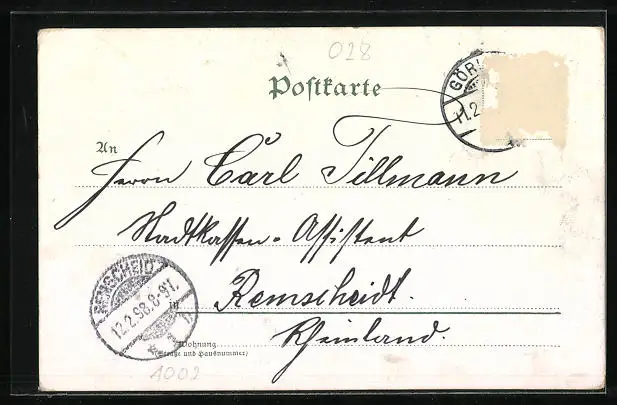 028
Postkarte
GÖR
11.2
An
Herrn Carl Tillmann
Stadtkassen-Assistent
in Remscheidt.
Rheinland.
REMSCHEID
12.2.98.8-9V.
Wohnung
(Straße und Hausnummer)
1002